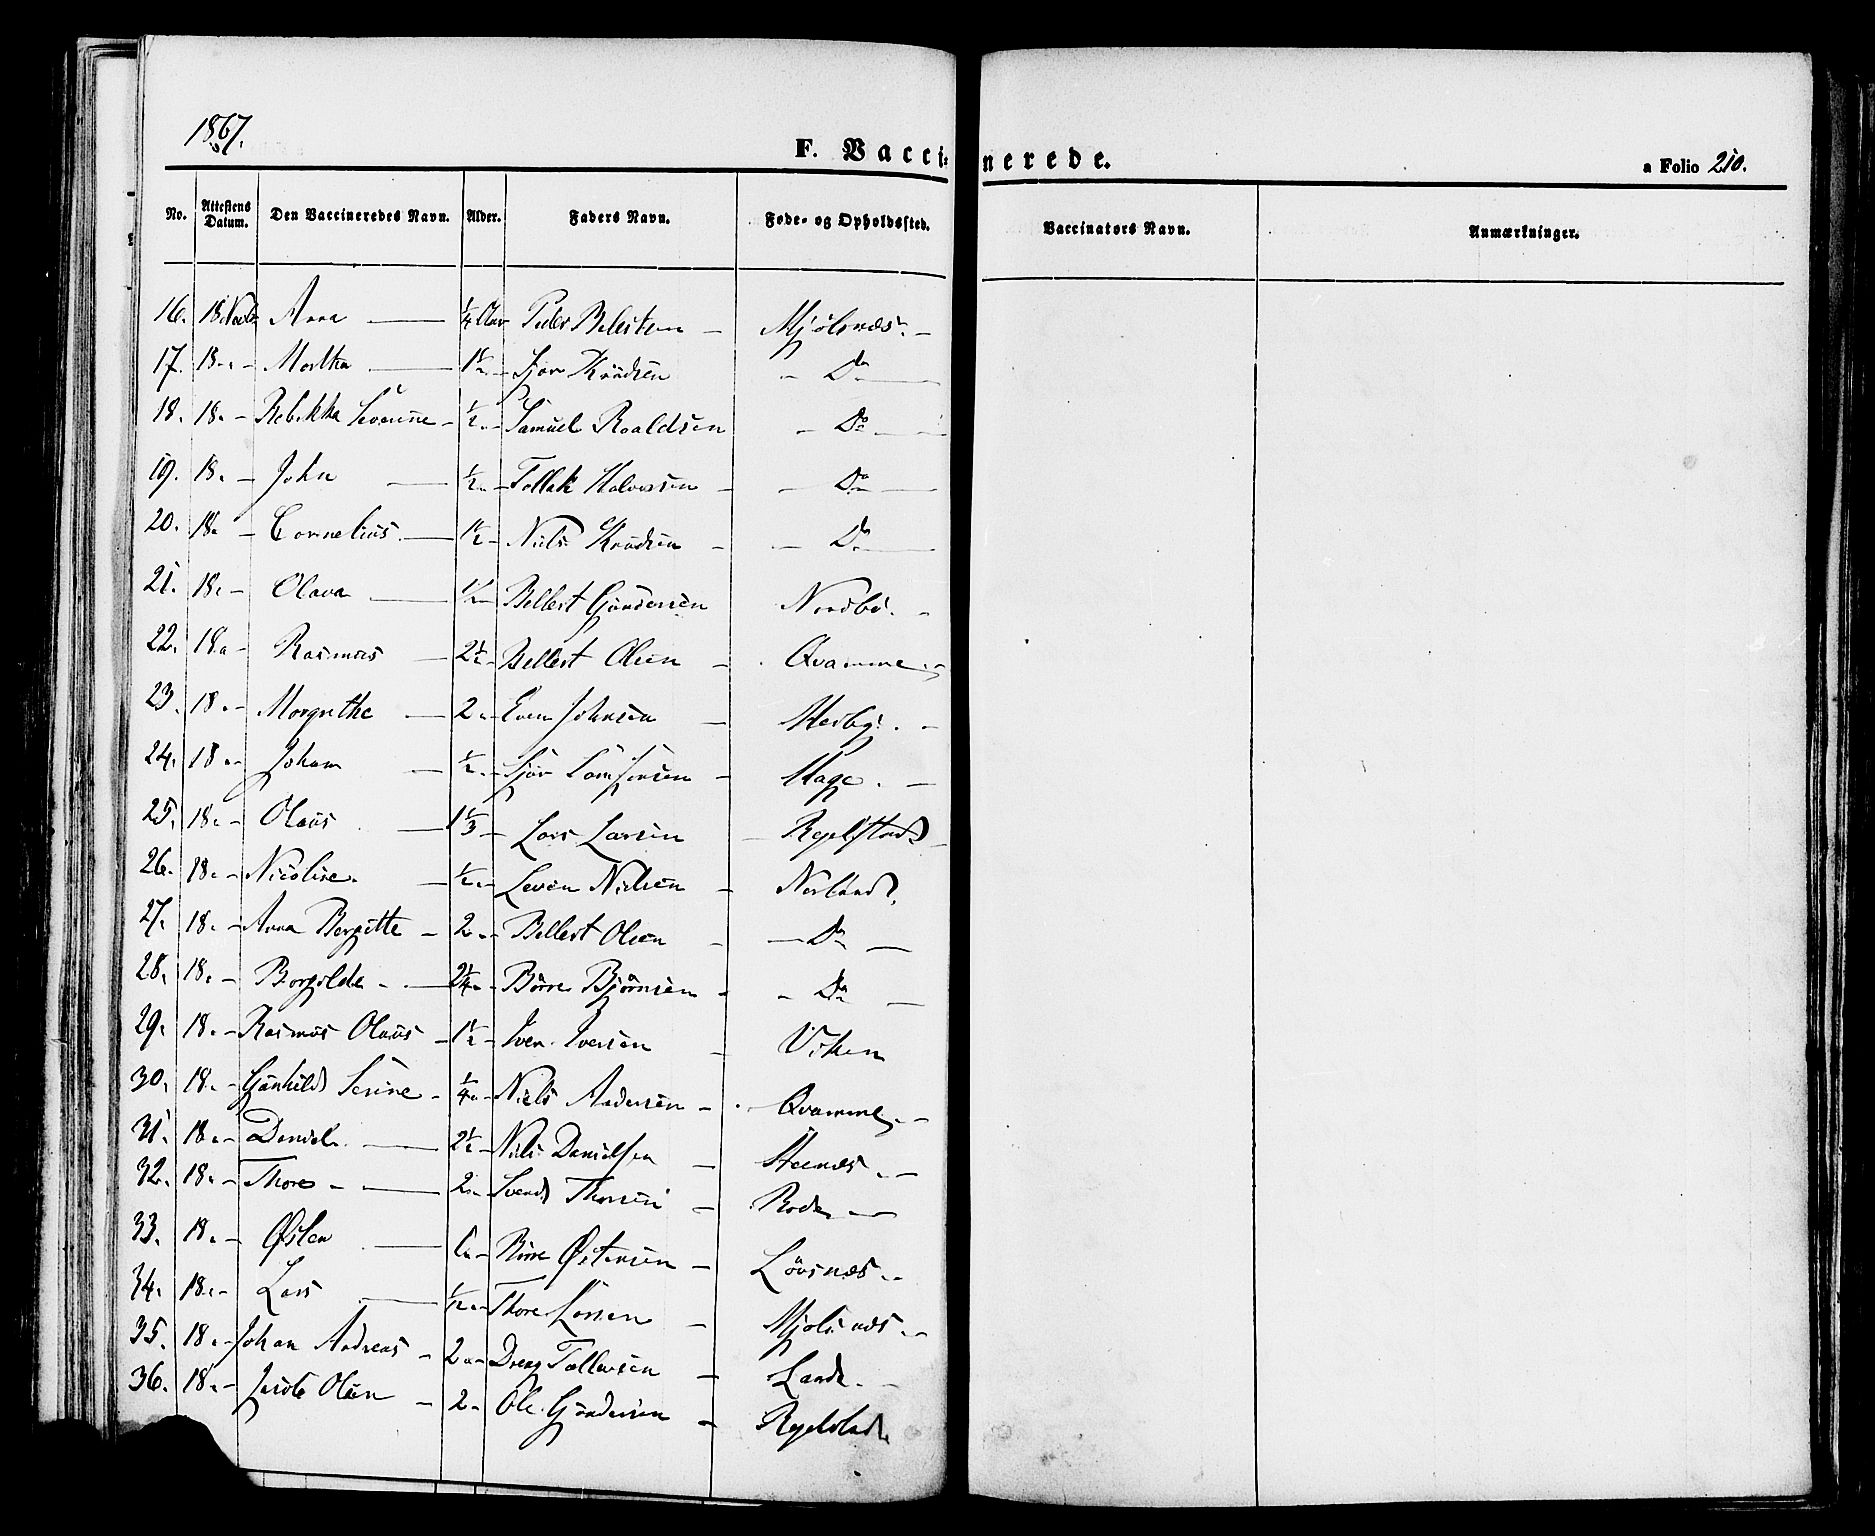 1867.
F. Vaccinerede.
a Folio 210.
No. Attestens Datum. Den Vaccineredes Navn. Alder. Faders Navn. Føde- og Opholdssted. Vaccinators Navn. Anmærkninger.
16. 18 Anna ¼ Peder Mjølsnæs.
17. 18 Martha 1½ Sjov Knudsen Do
18. 18 Rebekka Severine ½ Samuel Roaldsen Do
19. 18 John ½ Tollak Halvorsen Do
20. 18 Cornelius 1½ Niels Knudsen Do
21. 18 Olava ½ Bellest Gundersen Nordbø.
22. 18 Rasmus 2½ Bellest Olsen Qvamme.
23. 18 Margrethe 2 Even Johnsen
24. 18 Johan ½ Sjov Hage.
25. 18 Olaus 1⅓ Lars Larsen Regelstad
26. 18 Nicoline. ½ Nielsen Nerland.
27. 18 Anna Bergitte 2 Bellest Olsen Do
28. 18 Borgilde 2¼ Børre Bjørnsen Do
29. 18 Rasmus Olaus 1½ Iver Iversen Viken
30. 18 Gunhild Serine ¼ Niels Andersen Qvamme.
31. 18 Daniel 2½ Nils Danielsen
32. 18 Thore 2 Svend Thorsen
33. 18 Østen Børre Østensen
34. 18 Lars ½ Thore Larsen Mjølsnæs.
35. 18 Johan Andreas 2 Dreng Tollevsen Lande.
36. 18 Jacob Olsen 2 Ole Gundersen Regelstad